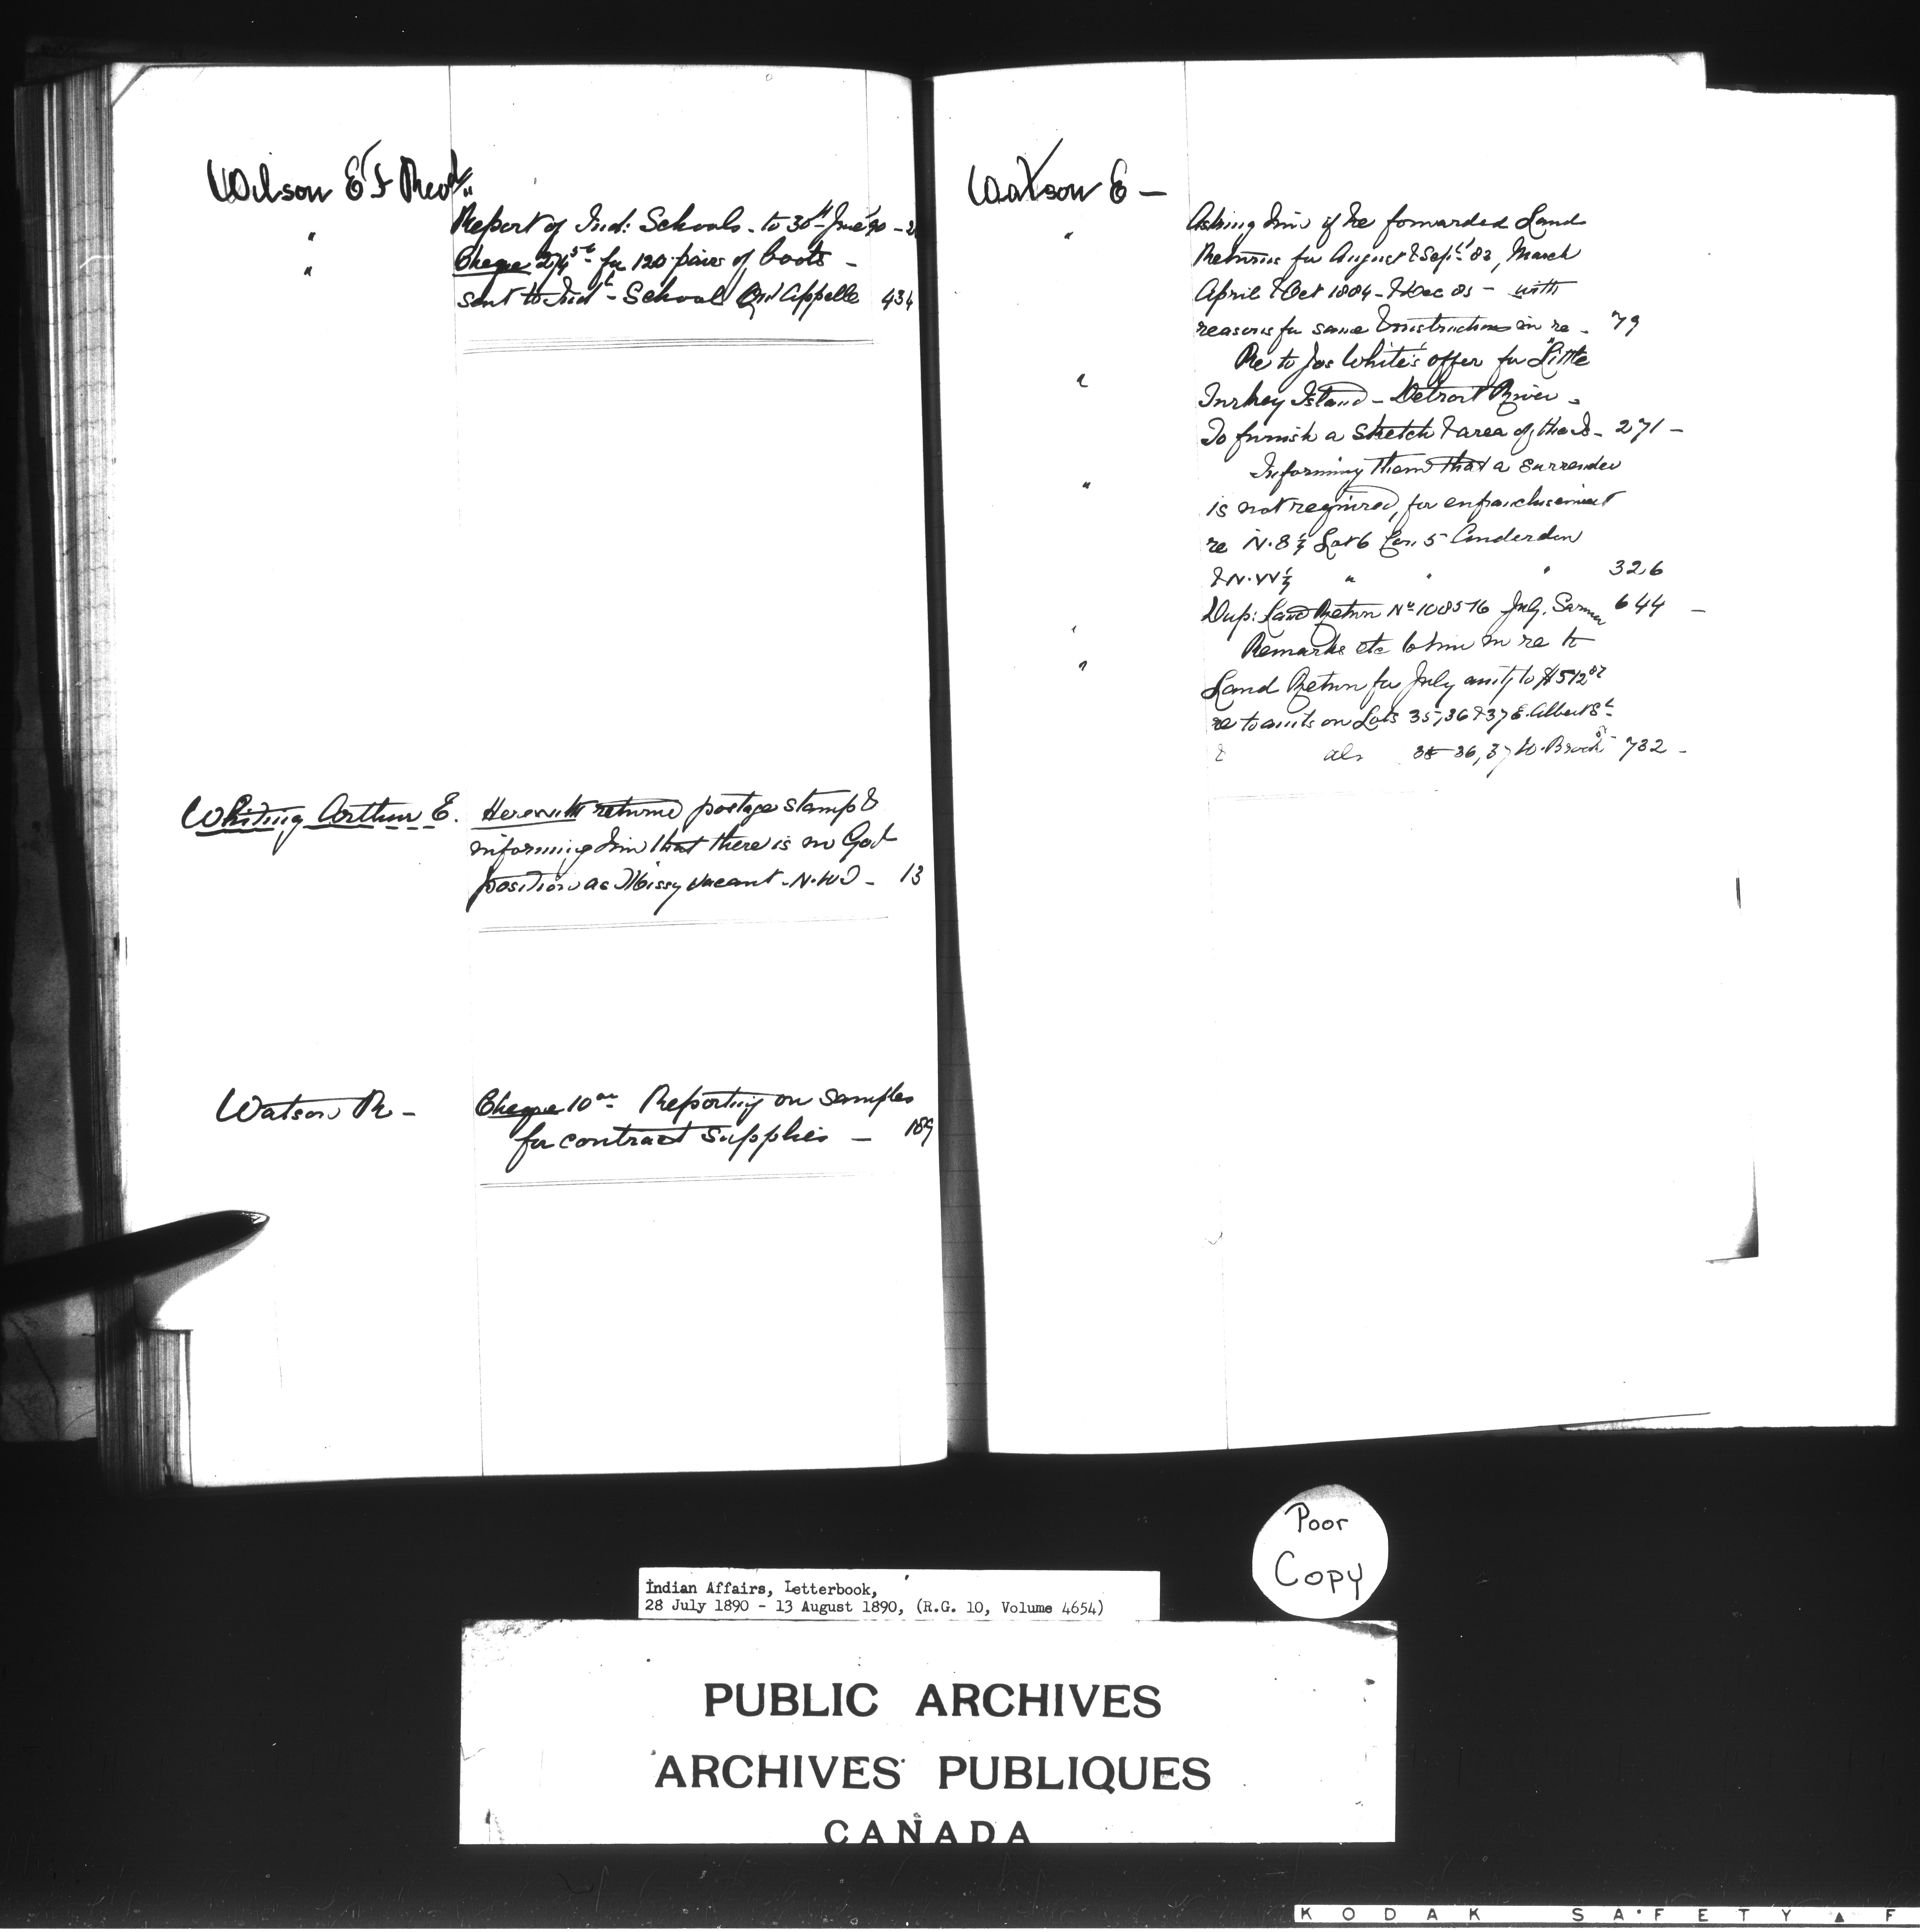 Wilson E F Revd
" Report of Ind: Schools - to 30th June 90 - 2
" Cheque 274 for 120 pairs of boots -
sent to Indl - School Qu'Appelle 434
Whiting Arthur E. Herewith returned postage stamp &
informing him that there is no Govt
position as Missy vacant - N.W.T - 13
Watson R - Cheque 10 00 Reporting on samples
for contract supplies - 189
Watson E -
" Asking him if he forwarded Land
Returns for August & Sept 83, March
April & Oct 1884 - & Dec 85 - with
reasons for same & instructions in re - 79
" Re to Jas White's offer for "Little
Turkey Island - Detroit River -
To furnish a sketch & area of the Is - 271 -
" Informing them that a surrender
is not required, for enfranchisement
re N.E ½ Lot 6 Con. 5 Anderdon
& N.W ½ " " " 326
" Dup: Land Return No 108576 July. Sarnia 644 -
" Remarks etc to him in re to
Land Return for July amtg to $512
re to amts on Lots 35, 36 & 37 E. Albert St
& also 36, 37 W. Brock St 732 -
Poor
Copy
Indian Affairs, Letterbook,
28 July 1890 - 13 August 1890, (R.G. 10, Volume 4654)
PUBLIC ARCHIVES
ARCHIVES PUBLIQUES
CANADA
KODAK SAFETY F